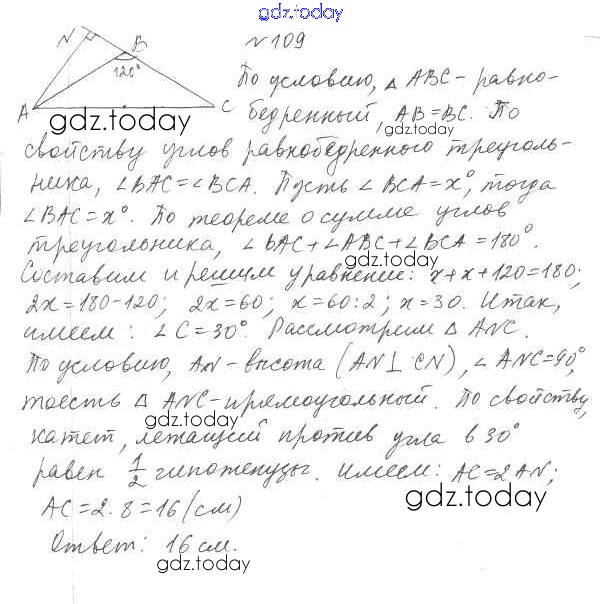 gdz.today
N B 120° A C
№109
По условию, △ ABC - равно-
бедренный, AB=BC. По
gdz.today
gdz.today
свойству углов равнобедренного треуголь-
ника, ∠BAC=∠BCA. Пусть ∠BCA=x°, тогда
∠BAC=x°. По теореме о сумме углов
треугольника, ∠BAC+∠ABC+∠BCA=180°.
gdz.today
Составим и решим уравнение: x+x+120=180;
2x=180-120; 2x=60; x=60:2; x=30. Итак,
имеем: ∠C=30°. Рассмотрим △ ANC.
По условию, AN-высота (AN⊥CN), ∠ANC=90°,
тоесть △ ANC-прямоугольный. По свойству,
gdz.today
катет, лежащий против угла в 30°
равен 1/2 гипотенузы. Имеем: AC=2AN;
gdz.today
AC=2·8=16(см)
Ответ: 16 см.
gdz.today